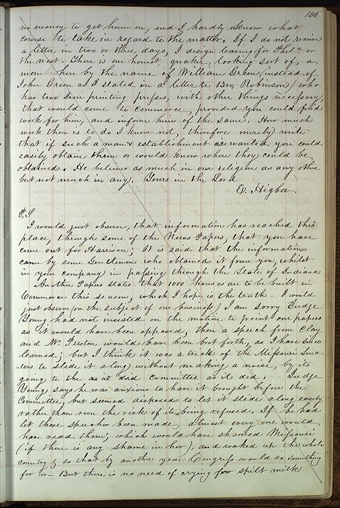 100
no money to get home on, and I hardly know what
course to take in regard to the matter. If I do not receive
a letter in two or three days, I design leaving for Phila or
the west. There is one honest, quaker, looking sort, of a
man here by the name of William Green (instead of
John Green as I stated in a letter to Bro Robinson) who
has two Iron printing presses, with other things necessary
that would come to Commerce, provided you could find
work for him, and inform him of the same. How much
work there is to do I know not, therefore merely write
that if such a man & establishment are wanted you could
easily obtain them or would know where they could be
obtained. He believes as much in our religion as any other
but not much in any. Yours in the Lord
E. Higbee
P.S.
I would just observe, that information has reached this
place, through some of the News Papers, that you have
come out for Harrison. It is said that the information
came by some Gentlemen who obtained it from you, whilst
in your company in passing through the State of Indiana
Another Paper states that 1000 houses are to be built in
Commerce this season, which I hope is the truth. I would
just observe (on the subject of our business) I am sorry Judge
Young had not insisted on the motion to print our papers
as it would have been opposed, then a speech from Clay
and Mr Preston would have been put forth, as I have since
learned; but I think it was a trick of the Missouri Sena-
tors to slide it along without making a noise, by its
going to the committee as it did. Judge
Young says he was anxious to have it brought before the
Committee, but seemed disposed to let it slide along easily
rather than run the risk of its being refused. If he had
let those speeches been made, almost every one would
have read them, which would have shamed Missouri
(if there is any shame in her), and waked up the whole
country; so that by another year Congress would do something
for us— But there is no need of crying for spilt milk